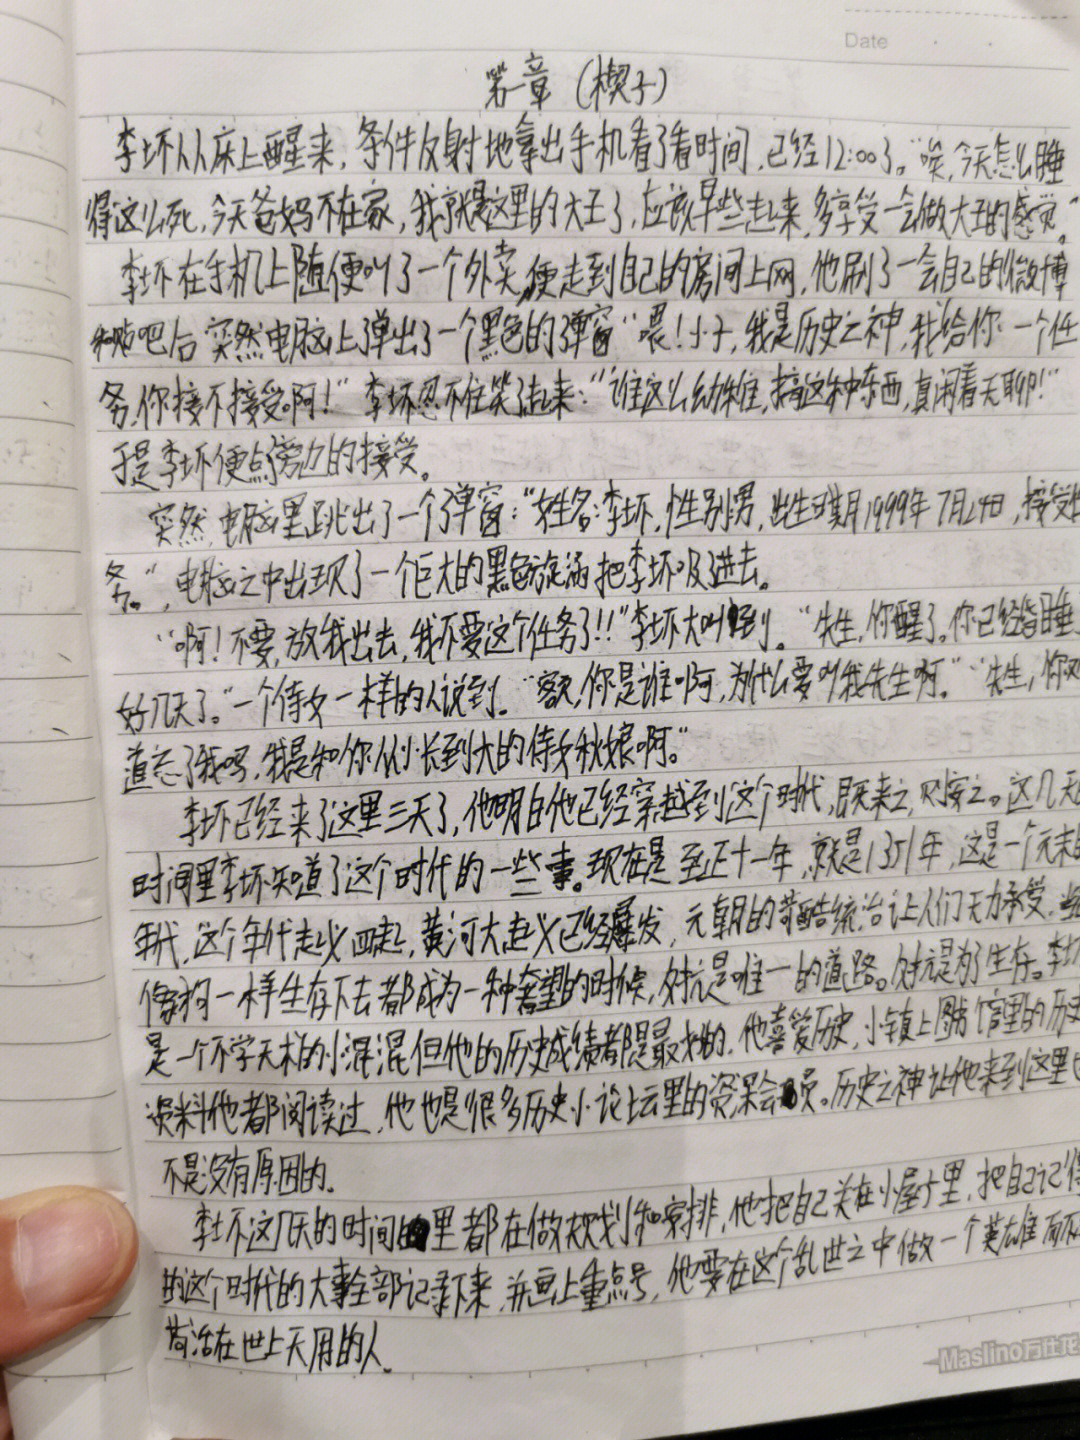 Date
第一章（楔子）
李坏从床上醒来，条件反射地拿出手机看了看时间，已经12:00了。“唉，今天怎么睡
得这么死，今天爸妈不在家，我就是这里的大王了，应该早些起来，多享受一会做大王的感觉。”
李坏在手机上随便叫了一个外卖，便走到自己的房间上网，他刷了一会自己的微博
和贴吧后突然电脑上弹出了一个黑色的弹窗“喂！小子，我是历史之神，我给你一个任
务，你接不接受啊！”李坏忍不住笑了起来：“谁这么幼稚，搞这种东西，真闲着无聊！”
于是李坏便点旁边的接受。
突然，电脑里跳出了一个弹窗：“姓名：李坏，性别男，出生日期1999年7月24日，接受任
务。”，电脑之中出现了一个巨大的黑色旋涡把李坏吸了进去。
“啊！不要，放我出去，我不要这个任务了！！”李坏大叫到。“先生，你醒了。你已经昏睡
好几天了。”一个侍女一样的人说到。“额，你是谁啊，为什么要叫我先生啊。”“先生，你难
道忘了我吗，我是和你从小长到大的侍女秋娘啊。”
李坏已经来了这里三天了，他明白他已经穿越到这个时代，既来之，则安之。这几天
时间里李坏知道了这个时代的一些事。现在是至正十一年，就是1351年，这是一个元末的
年代，这个年代起义四起，黄河大起义已经爆发，元朝的苛酷统治让人们无力承受，当
像狗一样生存下去都成为一种奢望的时候，对抗是唯一的道路。对抗是为了生存。李坏
是一个不学无术的小混混但他的历史成绩都是最好的，他喜爱历史，小镇上图书馆里的历史
资料他都阅读过，他也是很多历史小论坛里的资深会员。历史之神让他来到这里也
不是没有原因的。
李坏这几天的时间里都在做规划和安排，他把自己关在小屋子里，把自己记得
的这个时代的大事全部记录下来，并画上重点号，他要在这个乱世之中做一个英雄而不
苟活在世上无用的人。
Maslino万仕龙